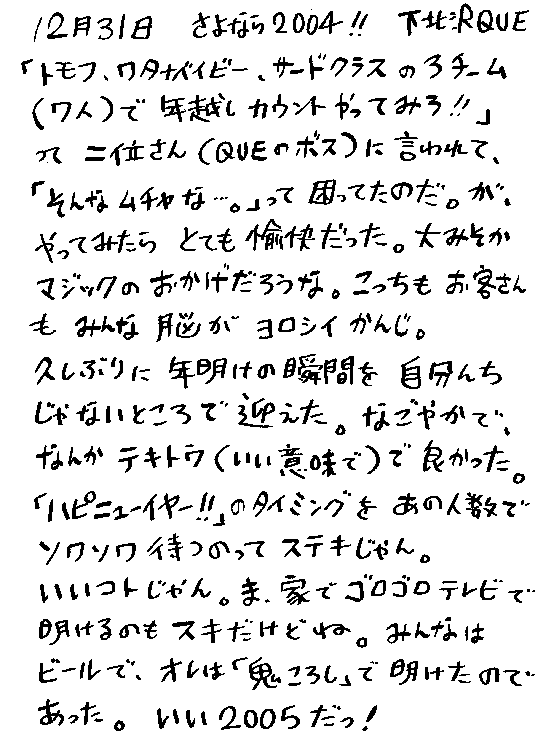 12月31日 さよなら2004!! 下北沢QUE
「トモフ、ワタナベイビー、サードクラスの3チーム
(7人)で年越しカウントやってみろ!!」
って二位さん(QUEのボス)に言われて、
「そんなムチャな…。」って困ってたのだ。が、
やってみたらとても愉快だった。大みそか
マジックのおかげだろうな。こっちもお客さん
もみんな脳がヨロシイかんじ。
久しぶりに年明けの瞬間を自分んち
じゃないところで迎えた。なごやかで、
なんかテキトウ(いい意味で)で良かった。
「ハピニューイヤー!!」のタイミングをあの人数で
ソワソワ待つのってステキじゃん。
いいコトじゃん。ま、家でゴロゴロテレビで
明けるのもスキだけどね。みんなは
ビールで、オレは「鬼ころし」で明けたので
あった。いい2005だっ!